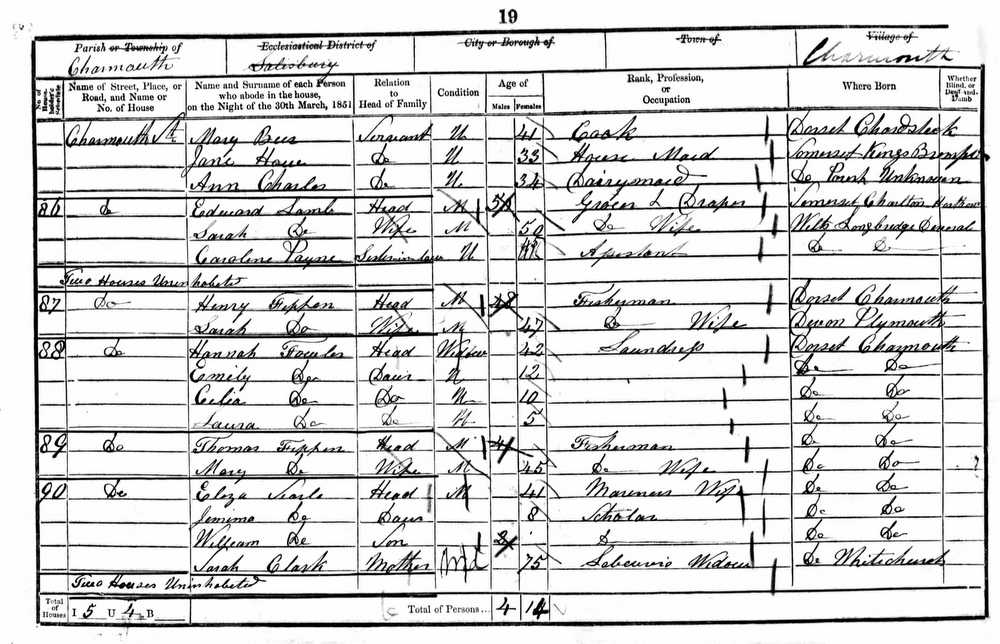 19
Parish or Township of Charmouth
Ecclesiastical District of Salisbury
City or Borough of
Town of
Village of Charmouth
No. of House-holder's Schedule
Name of Street, Place, or Road, and Name or No. of House
Name and Surname of each Person who abode in the house, on the Night of the 30th March, 1851
Relation to Head of Family
Condition
Age of
Males Females
Rank, Profession, or Occupation
Where Born
Whether Blind, or Deaf-and-Dumb
Charmouth St Mary Bees Servant U 41 Cook Dorset Chardstock
Jane House Do U 33 House Maid Somerset Kings Brompton
Ann Charles Do U 34 Dairymaid Do Parish Unknown
86 Do Edward Lamb Head M Grocer & Draper Somerset Charlton
Sarah Do Wife M 50 Do Wife Wilts Longbridge Deveral
Caroline Payne Sister in law U Assistant Do Do
Two Houses Uninhabited
87 Do Henry Fippen Head M 48 Fisherman Dorset Charmouth
Sarah Do Wife M 47 Do Wife Devon Plymouth
88 Do Hannah Fowler Head Widow 42 Laundress Dorset Charmouth
Emily Do Daur U 12 Do Do
Celia Do Do U 10 Do Do
Laura Do Do U 5 Do Do
89 Do Thomas Fippen Head M 41 Fisherman Do Do
Mary Do Wife M 45 Do Wife Do Do
90 Do Eliza Searle Head M 41 Mareners Wife Do Do
Jemima Do Daur 8 Scholar Do Do
William Do Son Do Do Do
Sarah Clark Mother Wd 75 Widow Do Whitchurch
Two Houses Uninhabited
Total of Houses I 5 U 4 B
Total of Persons... 4 14